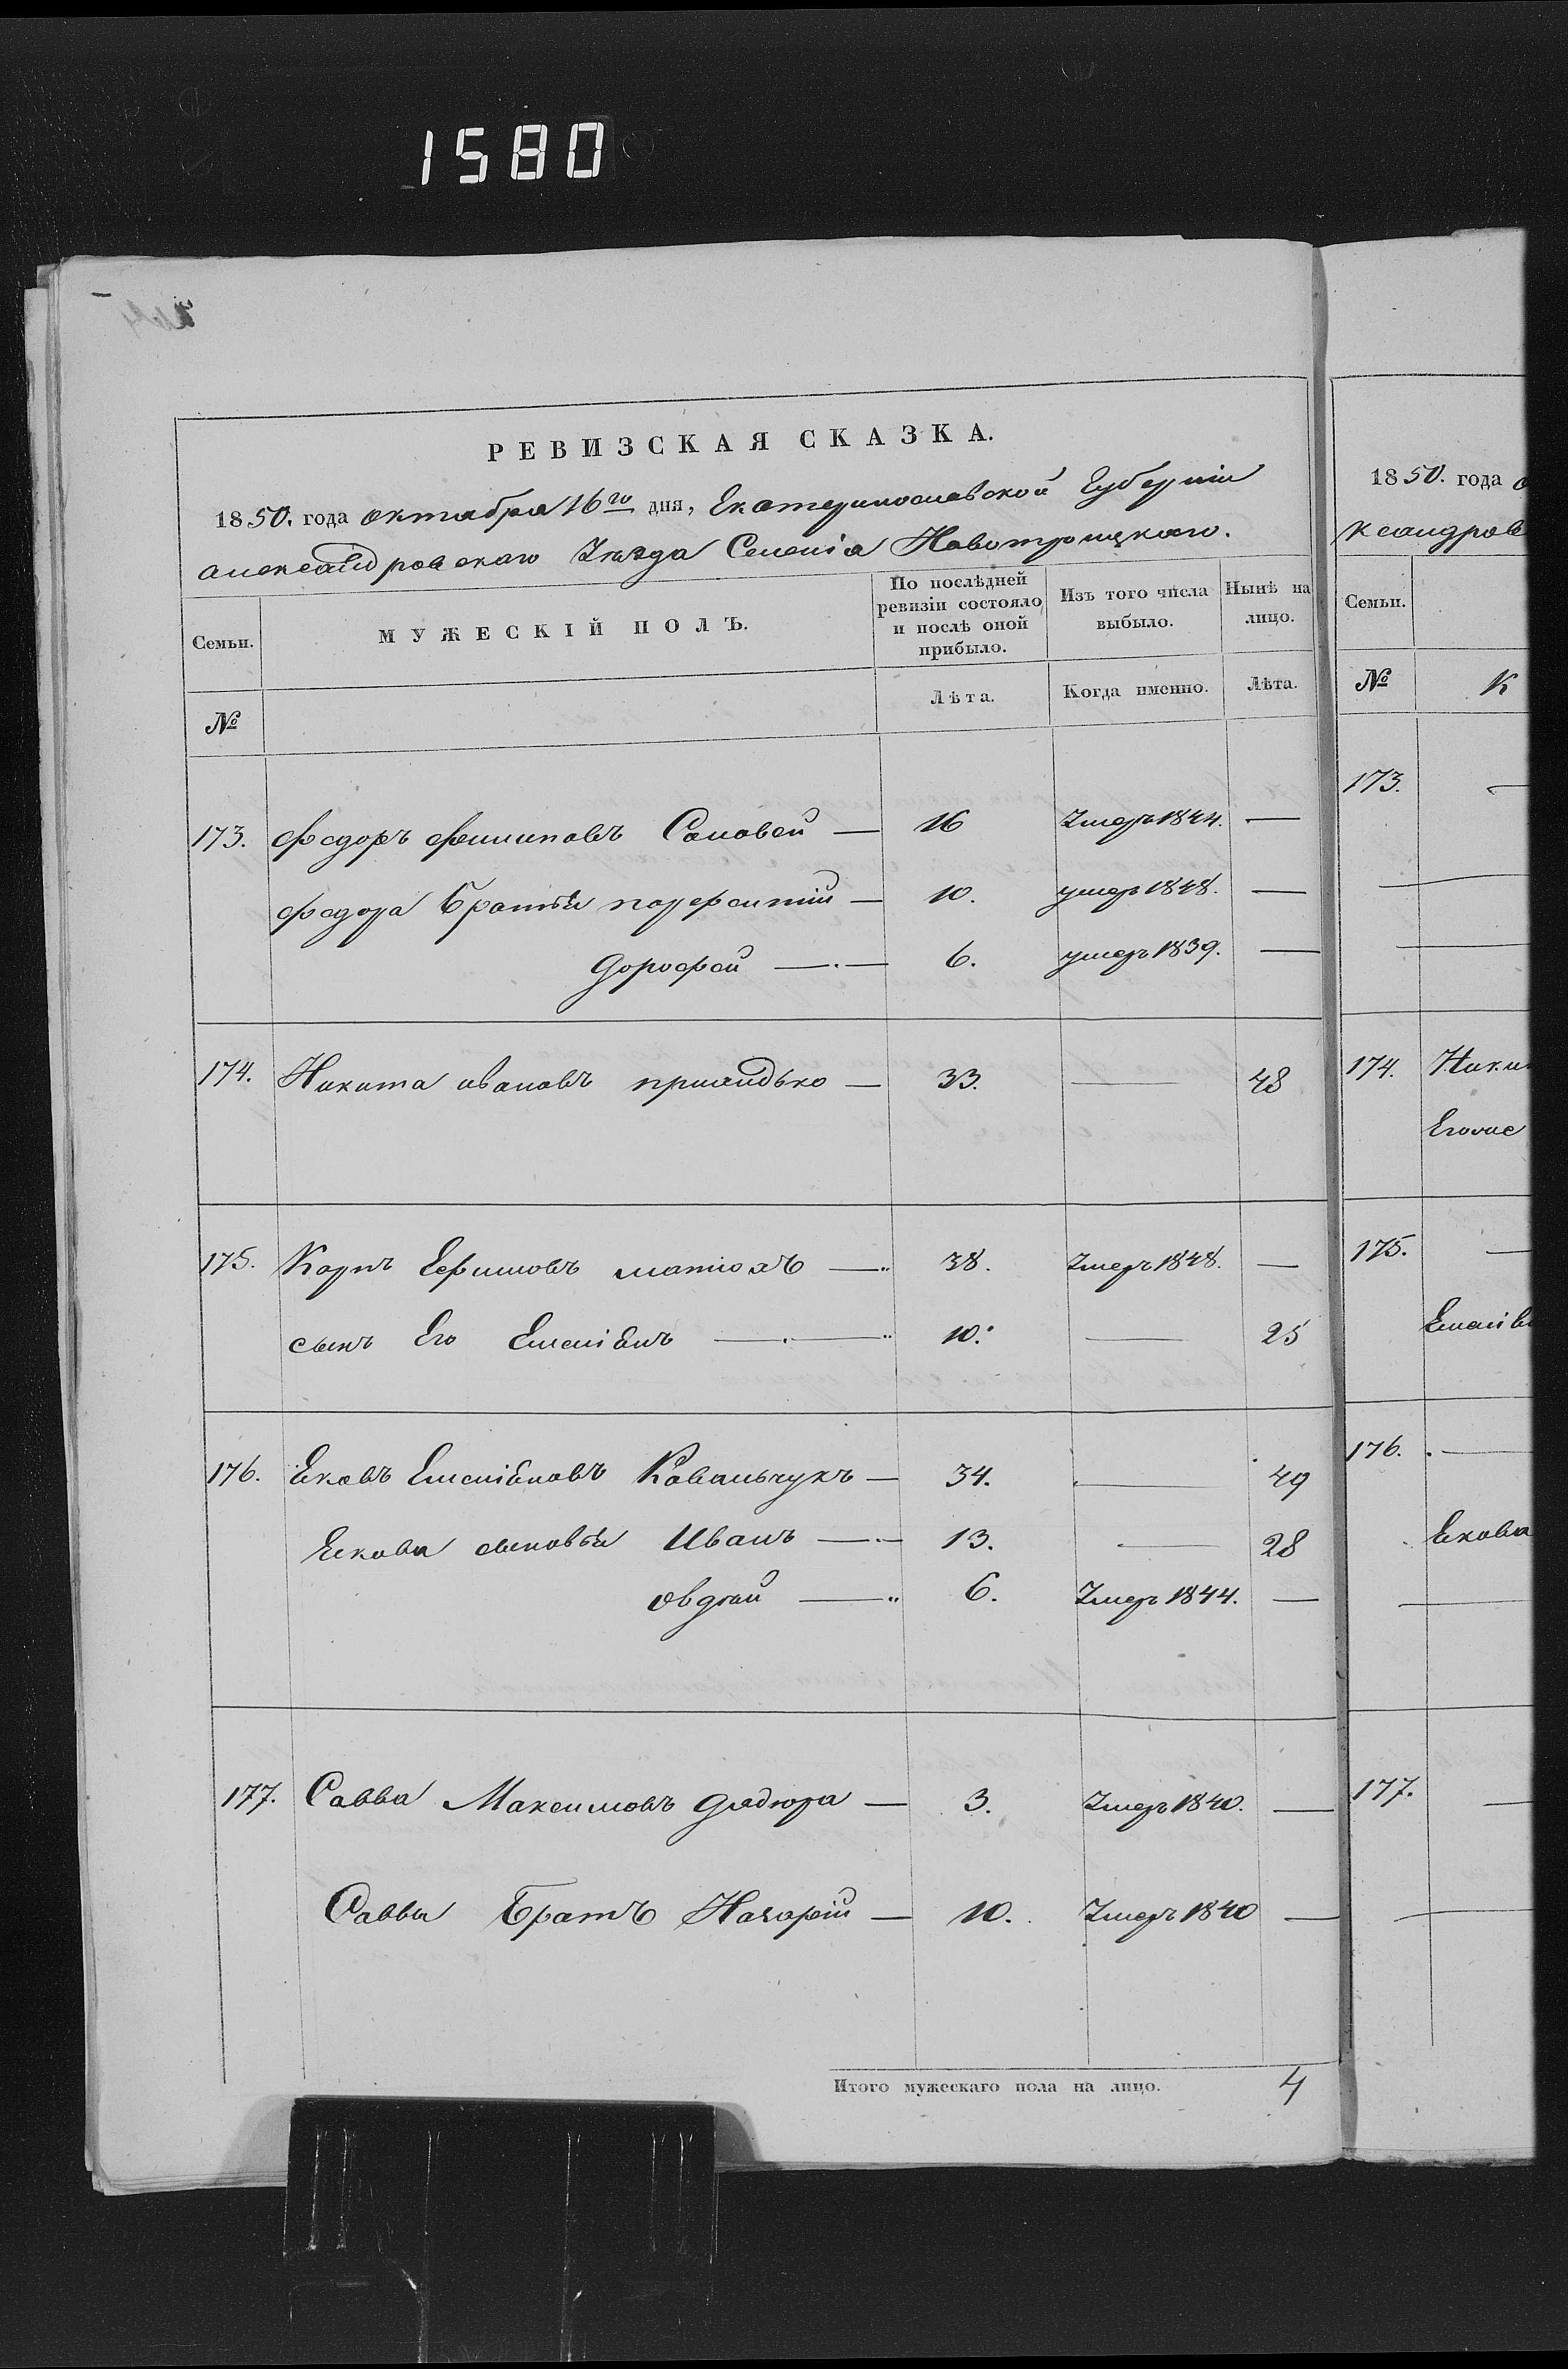 1580
РЕВИЗСКАЯ СКАЗКА.
1850. года октября 16го дня, Екатеринославской Губерніи
александровскаго Уѣзда Селенія Новотроицкаго.
Семьи. МУЖЕСКІЙ ПОЛЪ. По послѣдней ревизіи состояло и послѣ оной прибыло. Изъ того числа выбыло. Нынѣ на лицо.
№ Лѣта. Когда именно. Лѣта.
173. Федоръ Филиповъ Соловей — 16 Умеръ 1844. —
Федора братья парфентій — 10. умеръ 1848. —
Дорофей — 6. умеръ 1839. —
174. Никита ивановъ — 33. — 48
175. Карпъ Ефимовъ матюхъ — 38. Умеръ 1848. —
сынъ Его Емеліянъ — 10. — 25
176. Яковъ Емеліяновъ Ковальчукъ — 34. — 49
Якова сыновья Иванъ — 13. — 28
овдѣй — 6. Умеръ 1844. —
177. Савва Максимовъ дядюра — 3. Умеръ 1840. —
Саввы братъ Назарій — 10. Умеръ 1840 —
Итого мужескаго пола на лицо. 4
1850. года о
ксандров
Семьи.
№ К
173. —
174. Ники
Его
175. —
Емелія
176. —
Якова
177. —